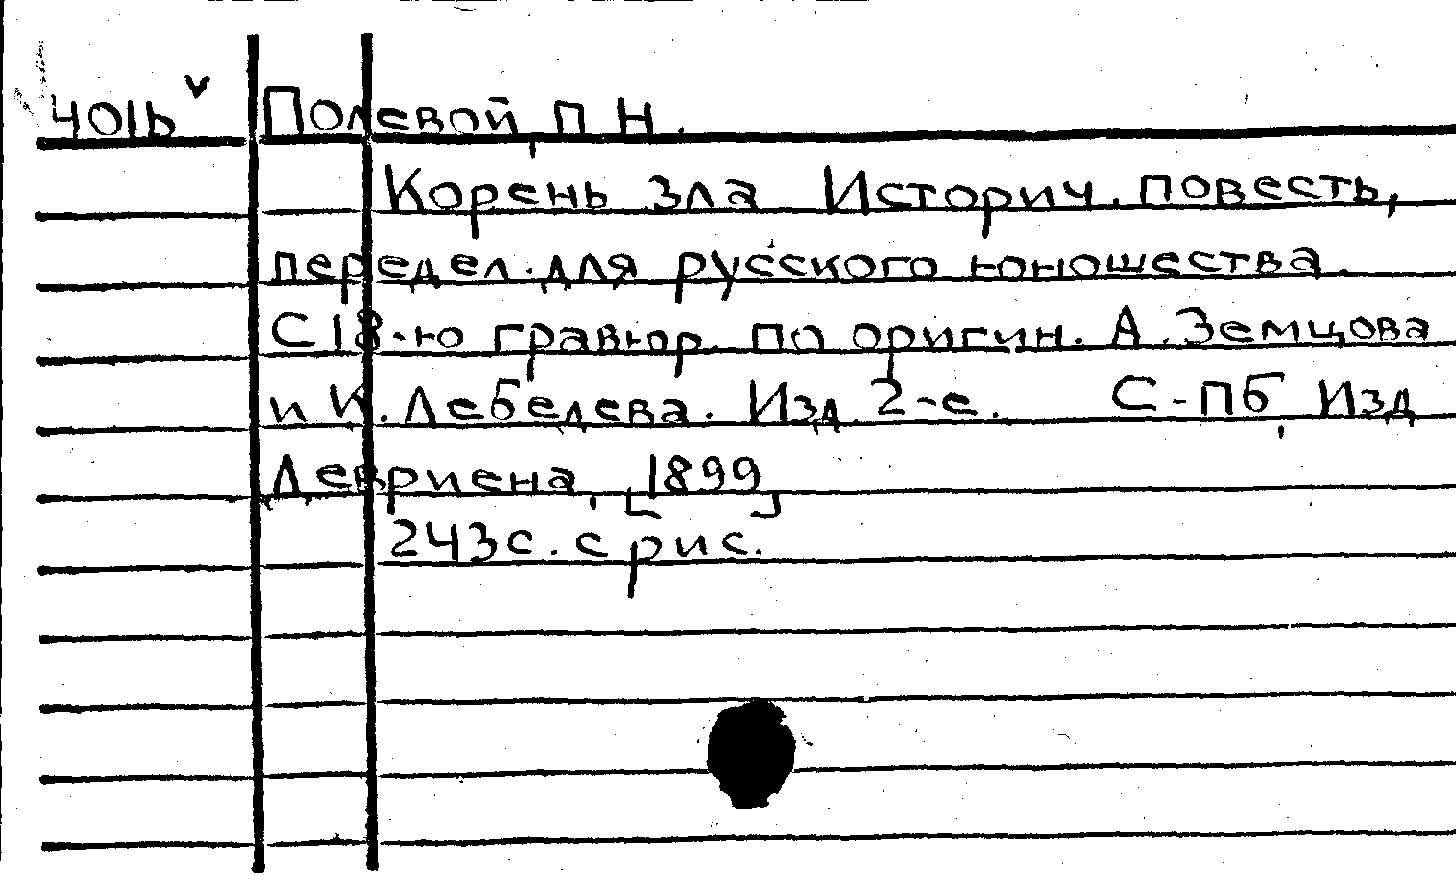 401b v Полевой, П Н.
Корень зла Историч. повесть,
передел. для русского юношества.
С 18-ю гравюр. по оригин. А. Земцова
и К. Лебедева. Изд 2-е. С-Пб, Изд
Девриена, [1899]
243с. с рис.